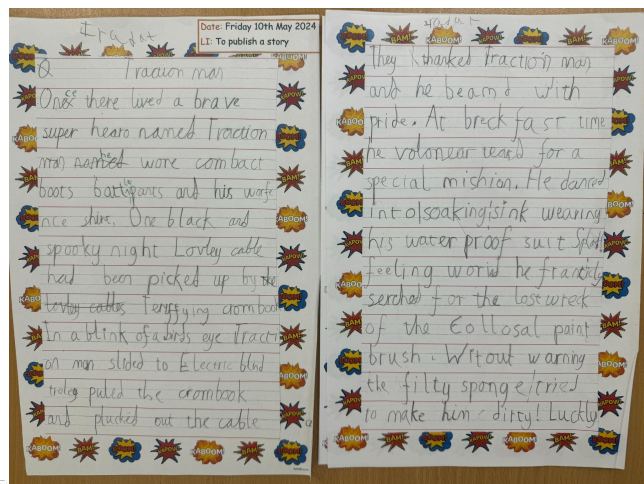 Date: Friday 10th May 2024
LI: To publish a story
Traction man
Once there lived a brave
super hearo named Traction
man named he wore combact
boots battle pants and his warfe
nce shire. One black and
spooky night Lovley cable
had been picked up by the
Lovley cables Terffying crombook
In a blink of a birds eye Tracti
on man slided to Electric blnd
puled the crombook
and plucked out the cable
They thanked Traction man
and he beamd with
pride. At breckfast time
he volonear teard for a
special mishion. He danced
into soaking sink wearing
his water proof suit Splash
feeling worid he franticly
serched for the lost wreck
of the Collosal paint
brush. Witout warning
the filty sponge tried
to make him dirty! Luckly
KABOOM!
BAM!
KAPOW!